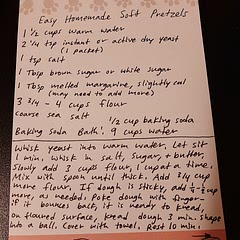 Easy Homemade Soft Pretzels
1 1/2 cups warm water
2 1/4 tsp instant or active dry yeast
(1 packet)
1 tsp salt
1 Tbsp brown sugar or white sugar
1 Tbsp melted margarine, slightly cool
(may need to add more)
3 3/4 - 4 cups flour
Coarse sea salt
1/2 cup baking soda
Baking Soda Bath: 9 cups water
Whisk yeast into warm water. Let sit
1 min, whisk in salt, sugar, + butter,
Slowly add 3 cups flour, 1 cup at a time.
Mix with spoon until thick. Add 3/4 cup
more flour. If dough is sticky, add 1/4-1/2 cup
more, as needed. Poke dough with finger -
if it bounces back, it is ready to knead,
on floured surface, knead dough 3 min. shape
into a ball. Cover with towel. Rest 10 min.